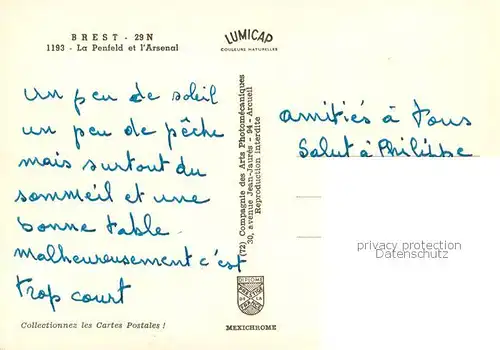 BREST - 29 N
1193 - La Penfeld et l'Arsenal
LUMICAP
COULEURS NATURELLES
un peu de soleil
un peu de pêche
mais surtout du
sommeil et une
bonne table.
malheureusement c'est
trop court
Collectionnez les Cartes Postales !
(72) Compagnie des Arts Photomécaniques
30, avenue Jean-Jaurès - 94 - Arcueil
Reproduction interdite
MEXICHROME
amitiés à tous
Salut à Philippe
privacy protection
Datenschutz